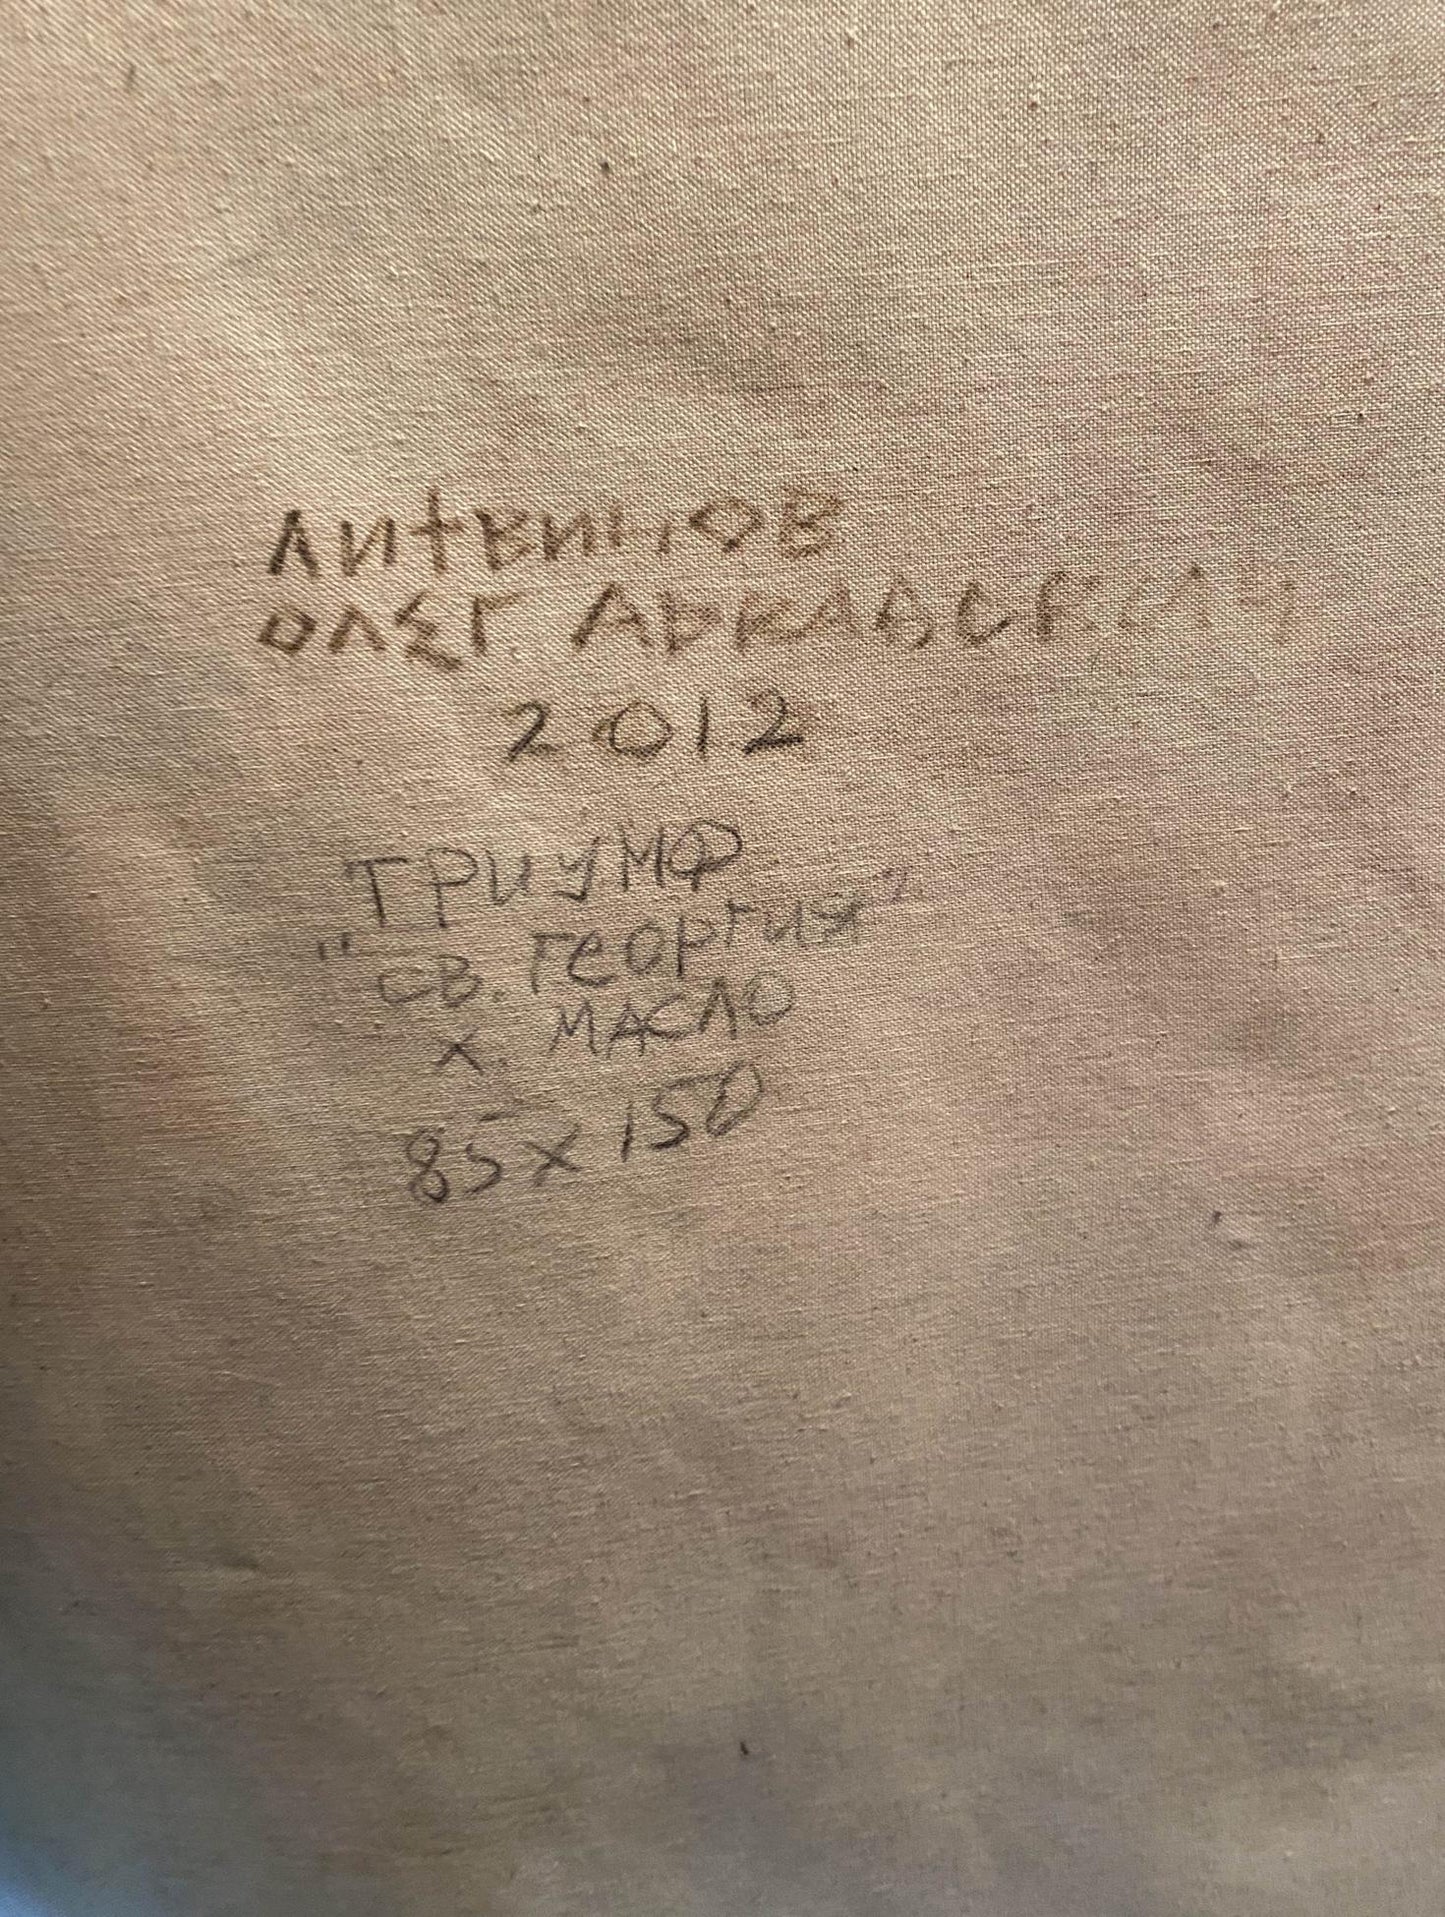 ЛИТВИНОВ
ОЛЕГ. АРКАДЬЕВИЧ
2012
ТРИУМФ
"СВ. ГЕОРГИЯ"
Х. МАСЛО
85х150